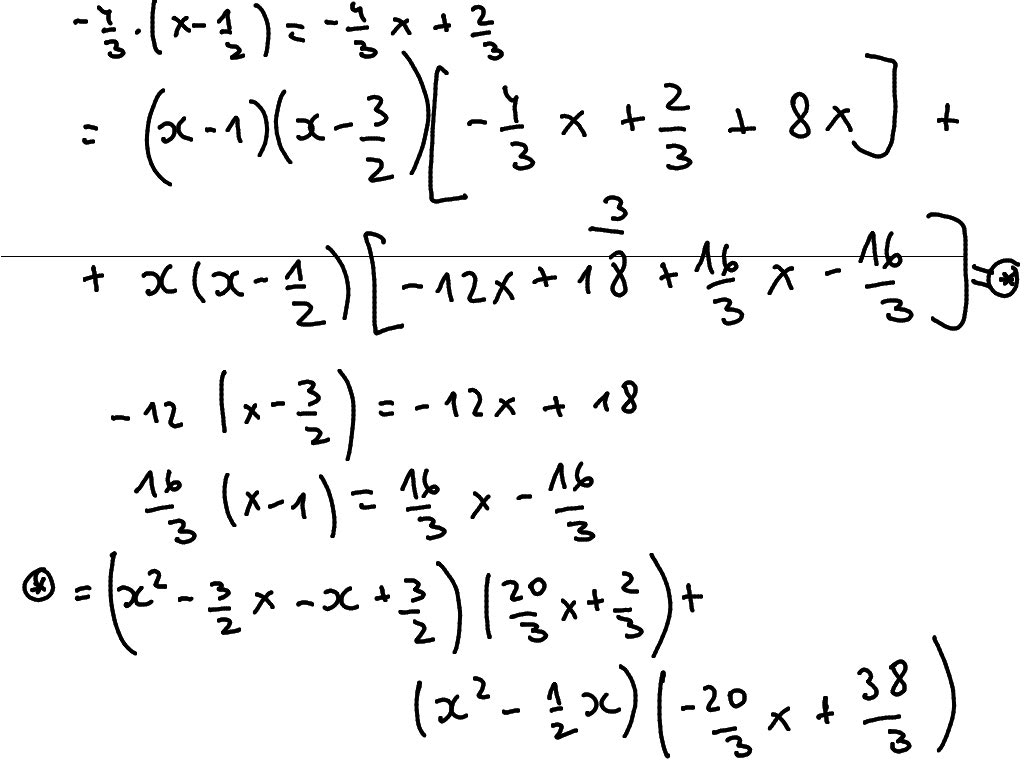 -4/3 · (x - 1/2) = -4/3 x + 2/3
= (x - 1)(x - 3/2) [ -4/3 x + 2/3 + 8x ] +
3
+ x(x - 1/2) [ -12x + 18 + 16/3 x - 16/3 ] = ⊛
-12 (x - 3/2) = -12x + 18
16/3 (x - 1) = 16/3 x - 16/3
⊛ = (x² - 3/2 x - x + 3/2) (20/3 x + 2/3) +
(x² - 1/2 x) (-20/3 x + 38/3)